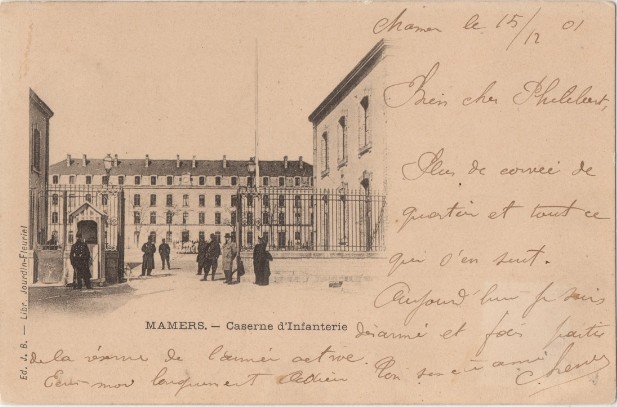 Mamers le 15/12 01
Bien cher Philibert,
Plus de corvée de
quartier et tout ce
qui s'en suit.
Aujourd'hui je suis
désarmé et fais partie
de la réserve de l'armée active.
Ecris-moi longuement Adieu
Ton ami
MAMERS. — Caserne d'Infanterie
Ed. J. B. — Libr. Jourdin-Fleuriel